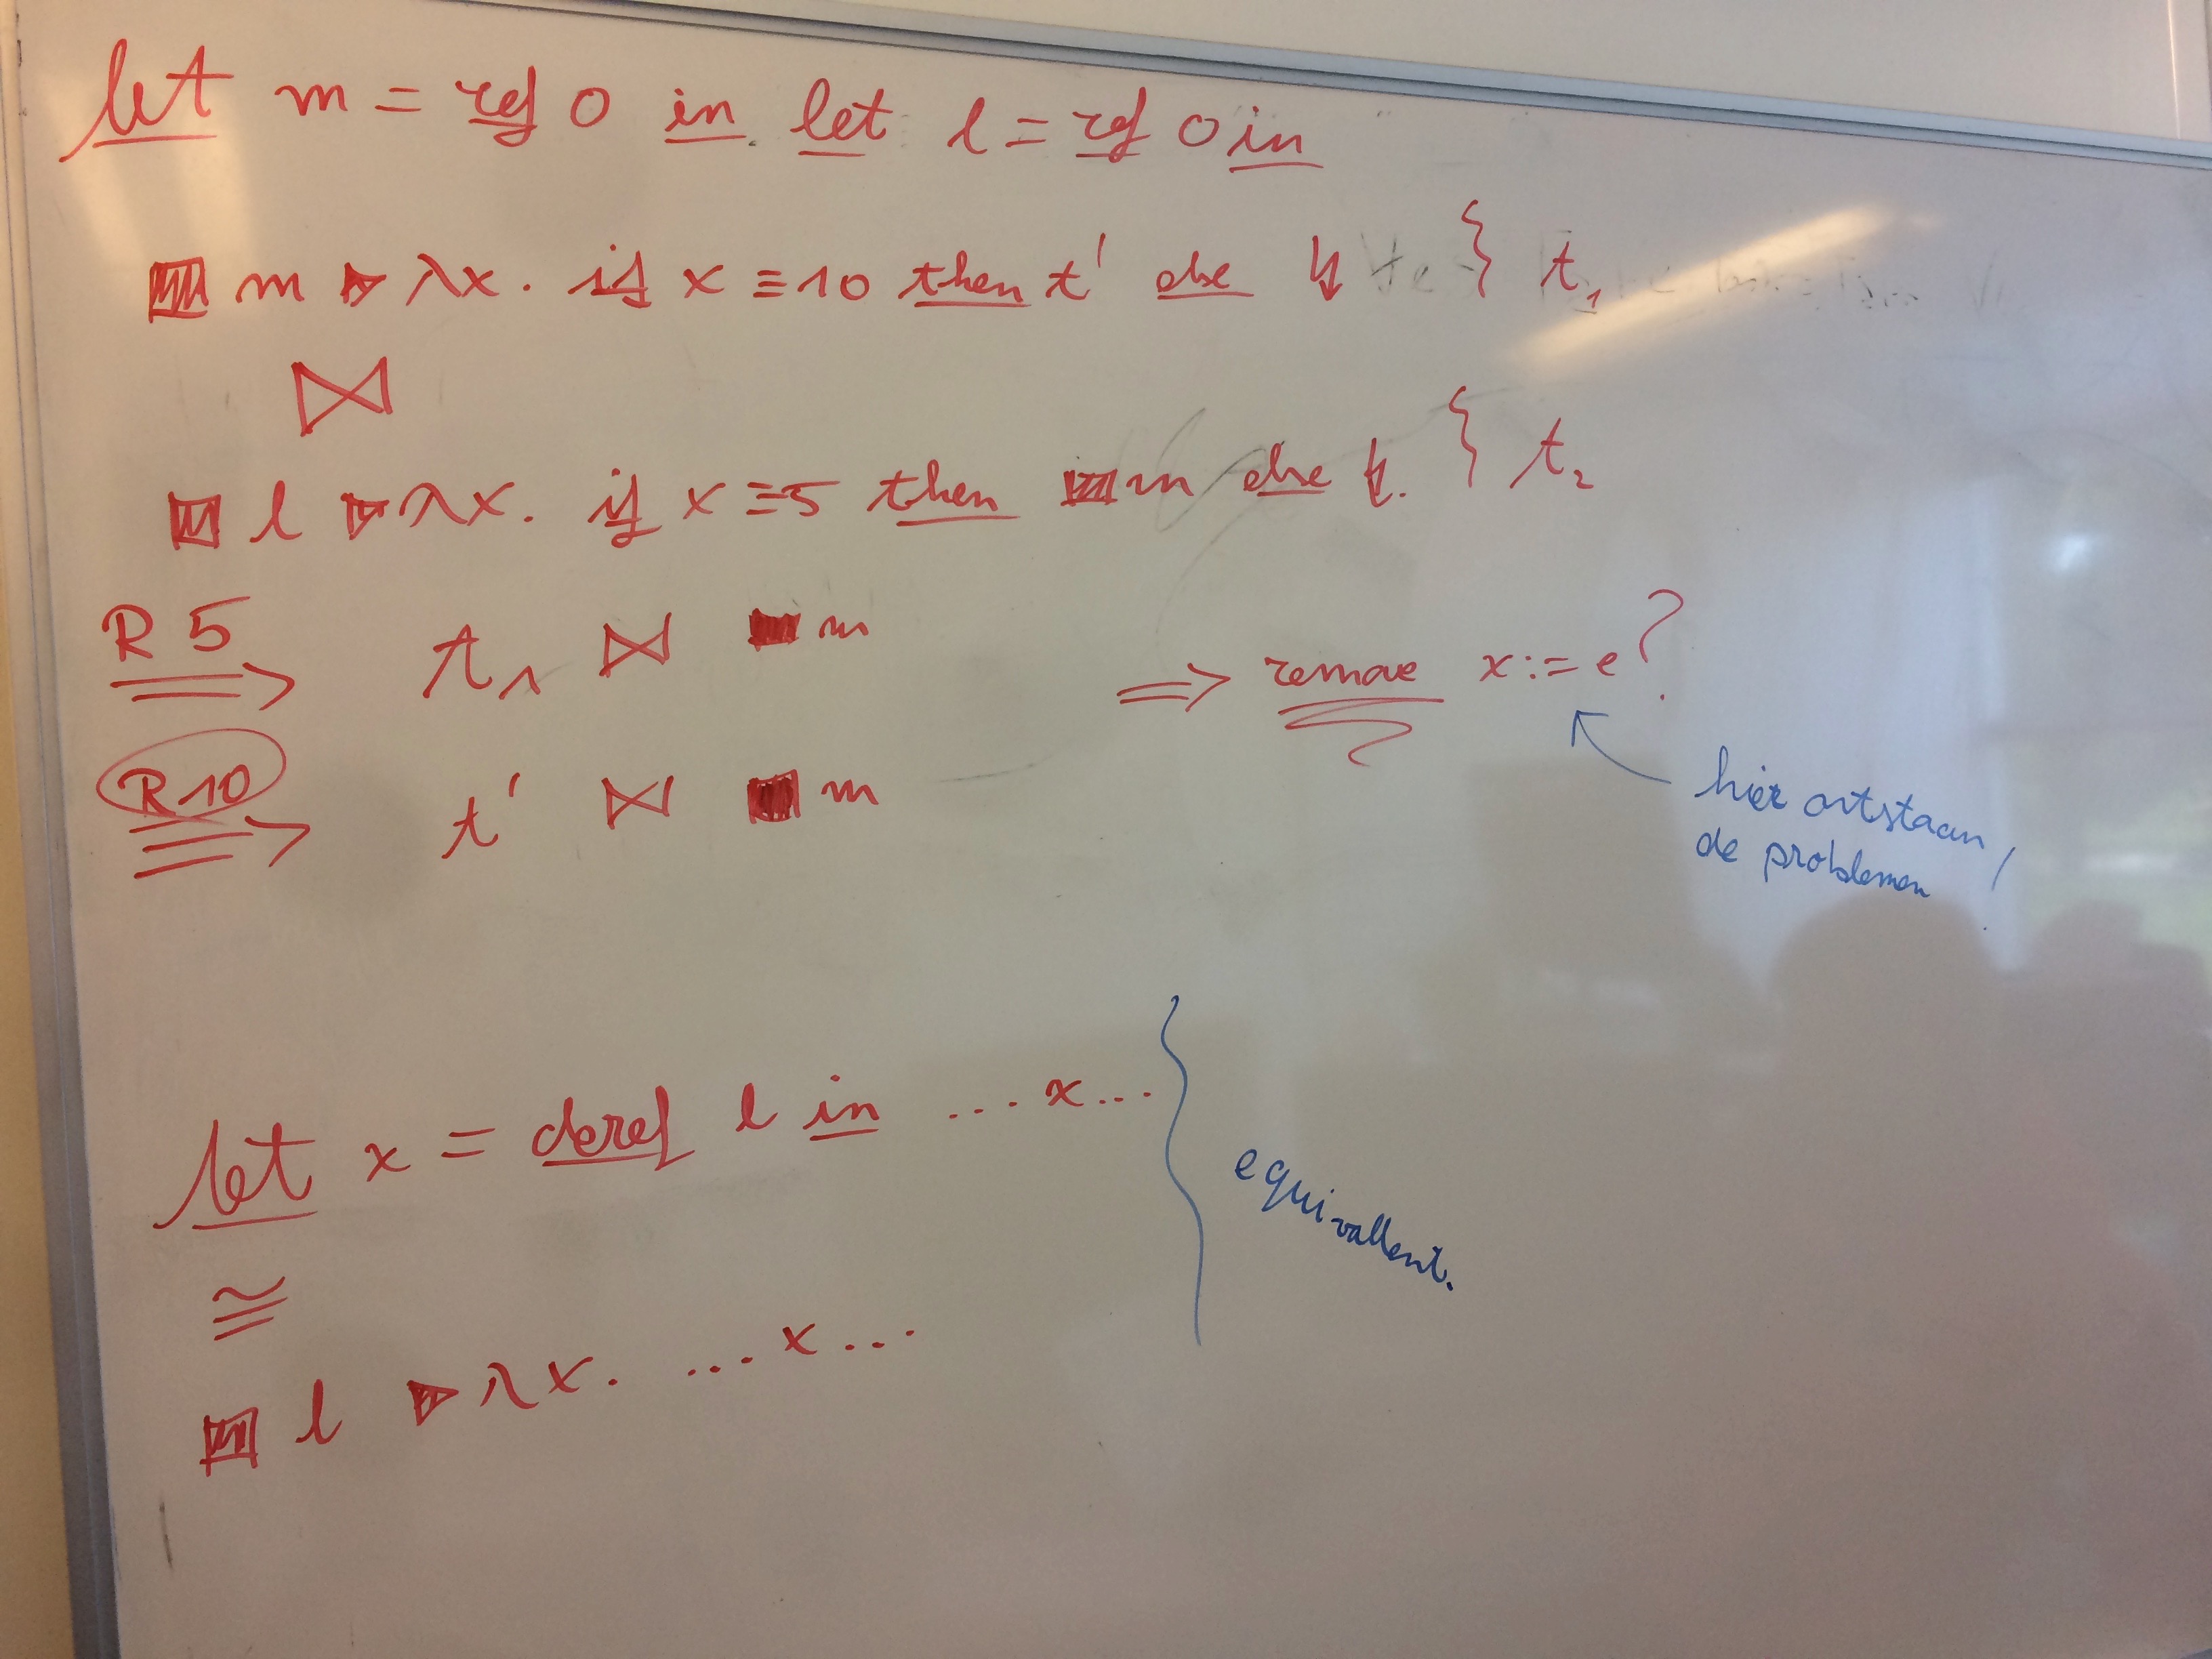 let m = ref 0 in let l = ref 0 in
■ m ▶ λx. if x ≡ 10 then t' else ↯ } t₁
⋈
■ l ▶ λx. if x ≡ 5 then ■ m else ↯. } t₂
R 5 ⟹ t₁ ⋈ ■ m
⟹ remove x := e?
R 10 ⟹ t' ⋈ ■ m
hier ontstaan
de problemen!
let x = deref l in ... x ...
equivallent.
≅
■ l ▶ λx. ... x ...